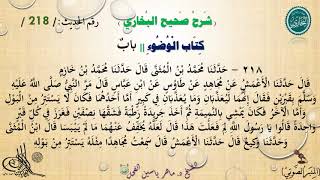 شرح صحيح البخاري
رقم الحديث: / 218 /
كتاب الوضوء || باب
٢١٨ - حدثنا محمد بن المثنى قال حدثنا محمد بن خازم
قال حدثنا الأعمش عن مجاهد عن طاوس عن ابن عباس قال مر النبي صلى الله عليه
وسلم بقبرين فقال إنهما ليعذبان وما يعذبان في كبير أما أحدهما فكان لا يستتر من البول
وأما الآخر فكان يمشي بالنميمة ثم أخذ جريدة رطبة فشقها نصفين فغرز في كل قبر
واحدة قالوا يا رسول الله لم فعلت هذا قال لعله يخفف عنهما ما لم ييبسا قال ابن المثنى
وحدثنا وكيع قال حدثنا الأعمش قال سمعت مجاهدا مثله يستتر من بوله